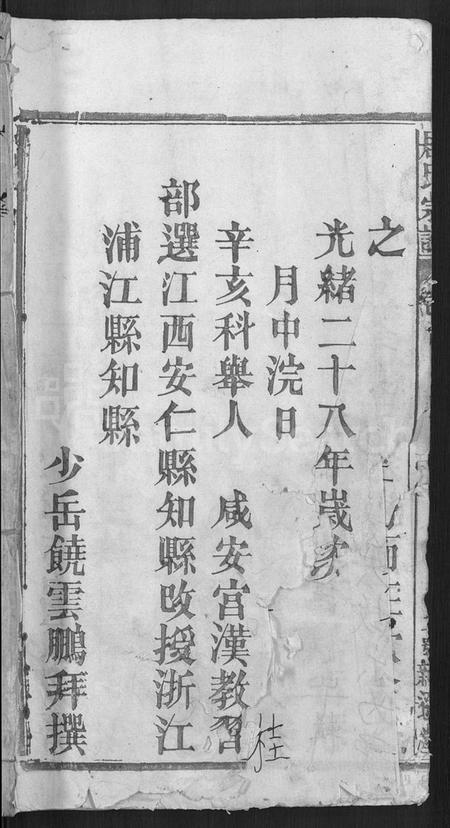 周氏宗譜
之
光緒二十八年歲次
月中浣日
辛亥科舉人 咸安宮漢教習
部選江西安仁縣知縣改授浙江
浦江縣知縣
少岳饒雲鵬拜撰
桂